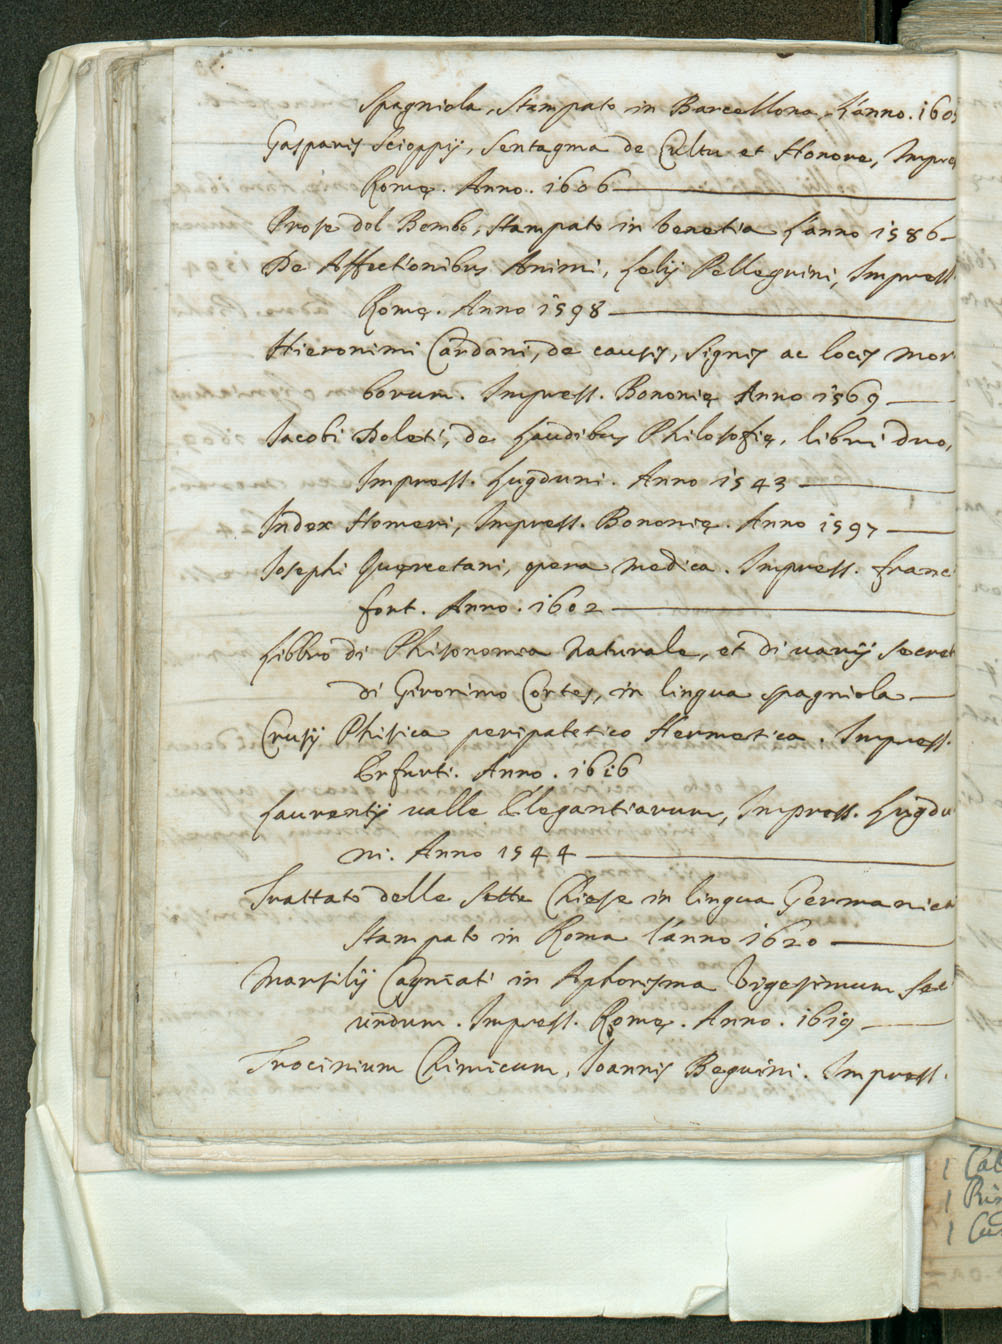 Spagniola, Stampato in Barcellona, l'anno. 160
Gasparis Scioppij, Sentagma de Cultu et Honore, Impre
Romę. Anno. 1606
Prose del Bembo, Stampato in Venetia l'anno 1586
De Affectionibus Animi, Lelij Pelleguini, Impress.
Romę. Anno 1598
Hieronimi Cardani, de causis, signis ac locis mor
borum. Impress. Bononię Anno 1569
Iacobi Doleti, de Laudibus Philosofię, libri duo,
Impress. Lugduni. Anno 1543
Index Homeri, Impress. Bononię. Anno 1597
Iosephi Quęrcetani, opera medica. Impress. Franc
fort. Anno. 1602
Libbro di Phisonomia naturale, et di varij secret
di Gironimo Cortes, in lingua spagniola
Crusij Phisica peripatetico Hermetica. Impress.
Erfurti. Anno. 1616
Laurentij valle Elegantiarum, Impress. Lugdu
ni. Anno 1544
Trattato delle sette Chiese in lingua Germanica
Stampato in Roma l'anno 1620
Marsilij Cagnati in Aphorisma Vigessimum sec
undum. Impress. Romę. Anno. 1619
Trocinium Chimicum, Ioannis Beguini. Impress.